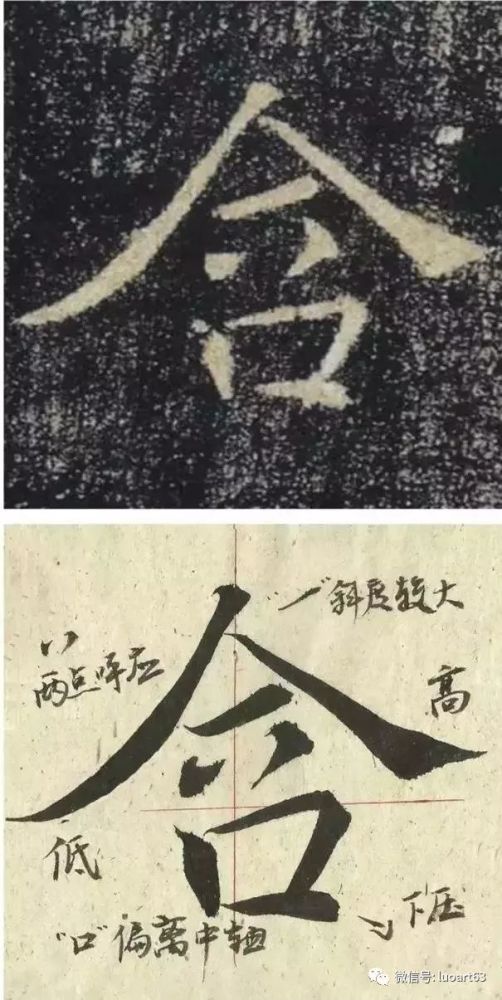 含
含
"一"斜度较大
两点呼应
高
低
下压
"口"偏离中轴
微信号: luoart63